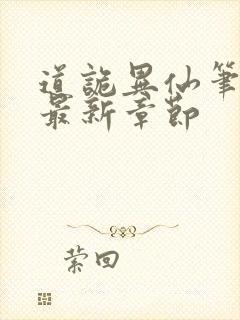 道詭異仙筆
最新章節
縈回